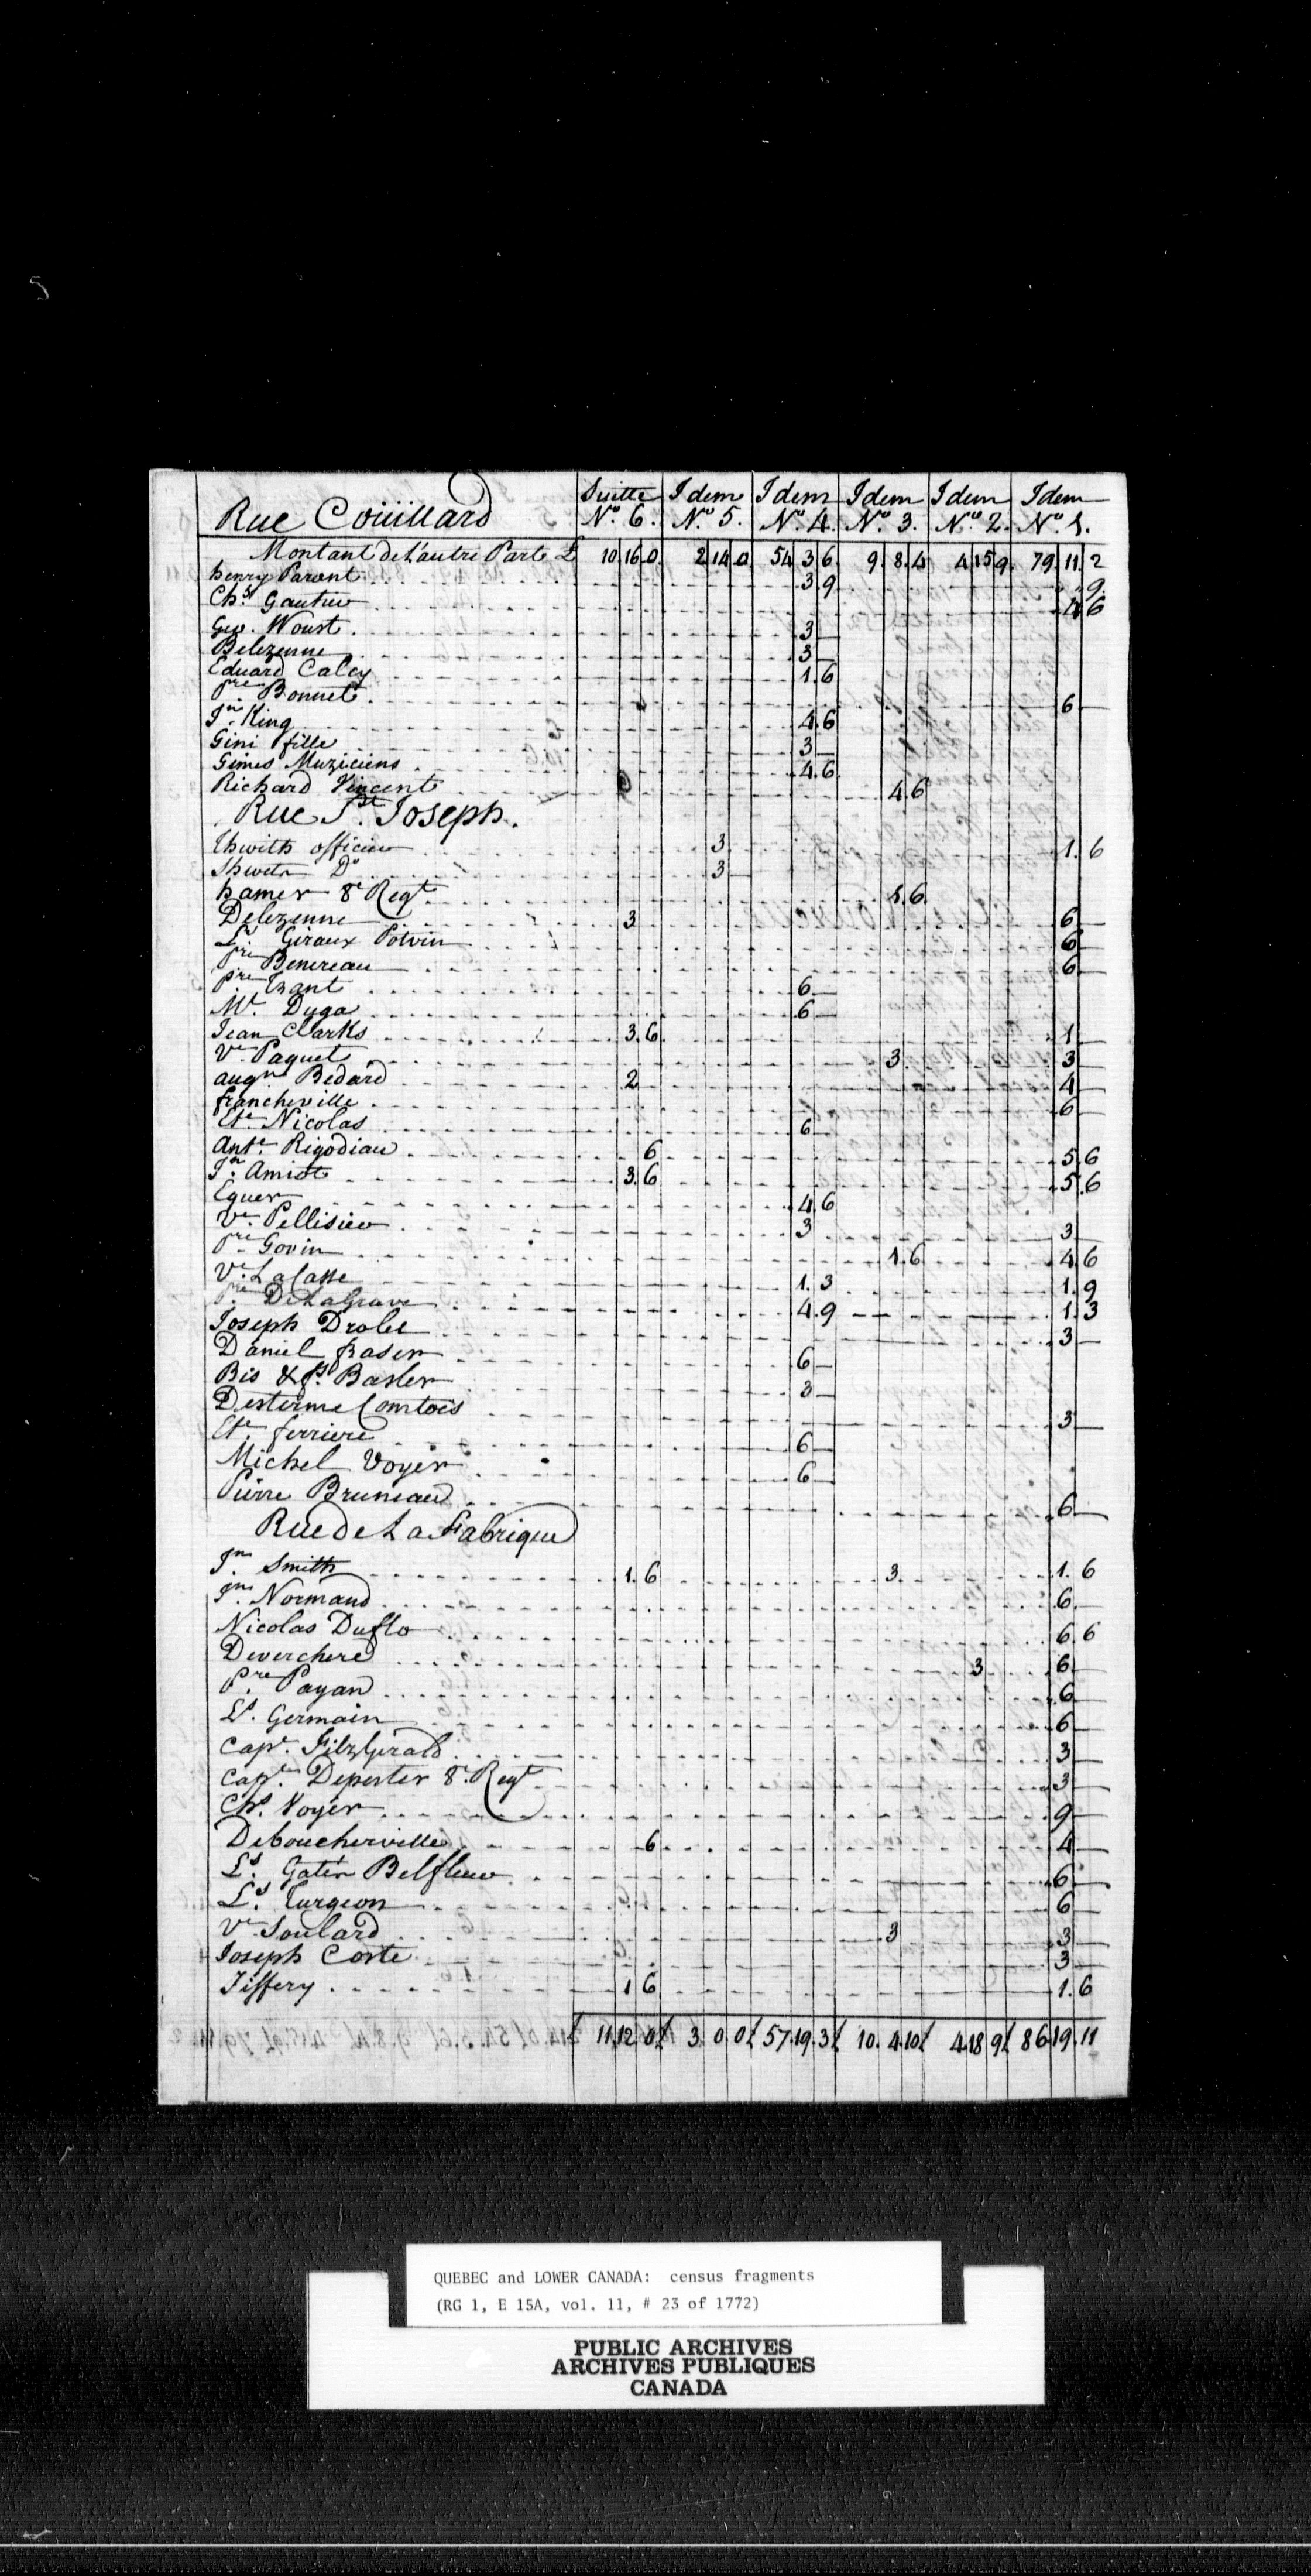 Suitte Idem Idem Idem Idem Idem
Rue Coüillard No. 6. No. 5. No. 4. No. 3. No. 2. No. 1.
Montant de L'autre Part £ 10 16 0. 2 14 0 54 3 6 9. 8. 4 4 15 9. 79. 11. 2
henry Parent 3. 9 . 9.
Chs. Gautier 4 6
Geo. Woust. 3—
Belezenne 3—
Eduard Calcy 1. 6
Pre. Bonnet 6—
Jn. King 4. 6
Gini fille 3—
Gimes Muziciens 4. 6
Richard Vincent 4. 6
Rue St. Joseph.
officier 3 1. 6
Do. 3—
hamer 8e Regt. 1. 6
Delezenne 3 6—
Ls. Giraux Potvin 6—
Pre. Benereau 6—
Pre. Trant 6—
Mr. Duga 6—
Jean Clarks 3. 6 1—
Ve. Paquet 3. 3—
augn. Bedard 2 4—
francheville 6—
Et. Nicolas 6—
Ante. Rigodiau 6 5. 6
Jn. Amiot 3. 6 5. 6
Equer 4. 6
Ve. Pellisier 3 3—
Pre. Govin 1. 6 4. 6
Ve. LaCasse 1. 3 1. 9
Pre. De LaGrave 4. 9 1. 3
Joseph Drolet 3—
Daniel fraser 6—
Bis & Ps. Basler 3—
Comtois 3—
Et. ferriere 6—
Michel Voyer 6—
Pierre Bruneau 6—
Rue de La Fabrique
Jn. Smith 1. 6 3. 1. 6
Jn. Normand 6.
Nicolas Duflo 6. 6
Deverchere 3 6—
Pre. Payan 6—
Ls. Germain 6—
Capt. FitzGerald 3—
Capt. Depester 8e. Regt 3—
Chs. Voyer 9—
Deboucherville 6 4—
Ls. Gatien Belfleur 6—
Ls. Turgeon 6—
Ve Soulard 3 3—
Joseph Corte 3—
Tiffery 1 6 1. 6
11 12 0 3 0 0 57. 19. 3 10. 4. 10 4 18 9 86 19. 11
QUEBEC and LOWER CANADA: census fragments
(RG 1, E 15A, vol. 11, # 23 of 1772)
PUBLIC ARCHIVES
ARCHIVES PUBLIQUES
CANADA